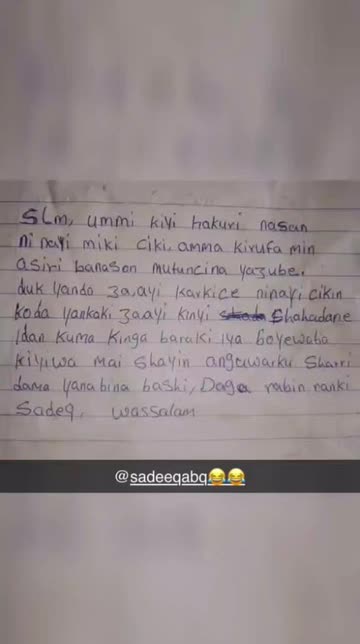 Slm, ummi kiyi hakuri nasan
ni nayi miki ciki, amma kirufa min
asiri banason mutuncina yazube.
duk yando za, ayi karkice ninayi cikin
koda yankaki zaayi kinyi Shahadane
Idan kuma kinga baraki iya boyewaba
kiyiwa mai shayin anguwarku sharri
dama yanabina bashi, Daga rabin ranki
Sadeq, wassalam
@sadeeqabq😂😂